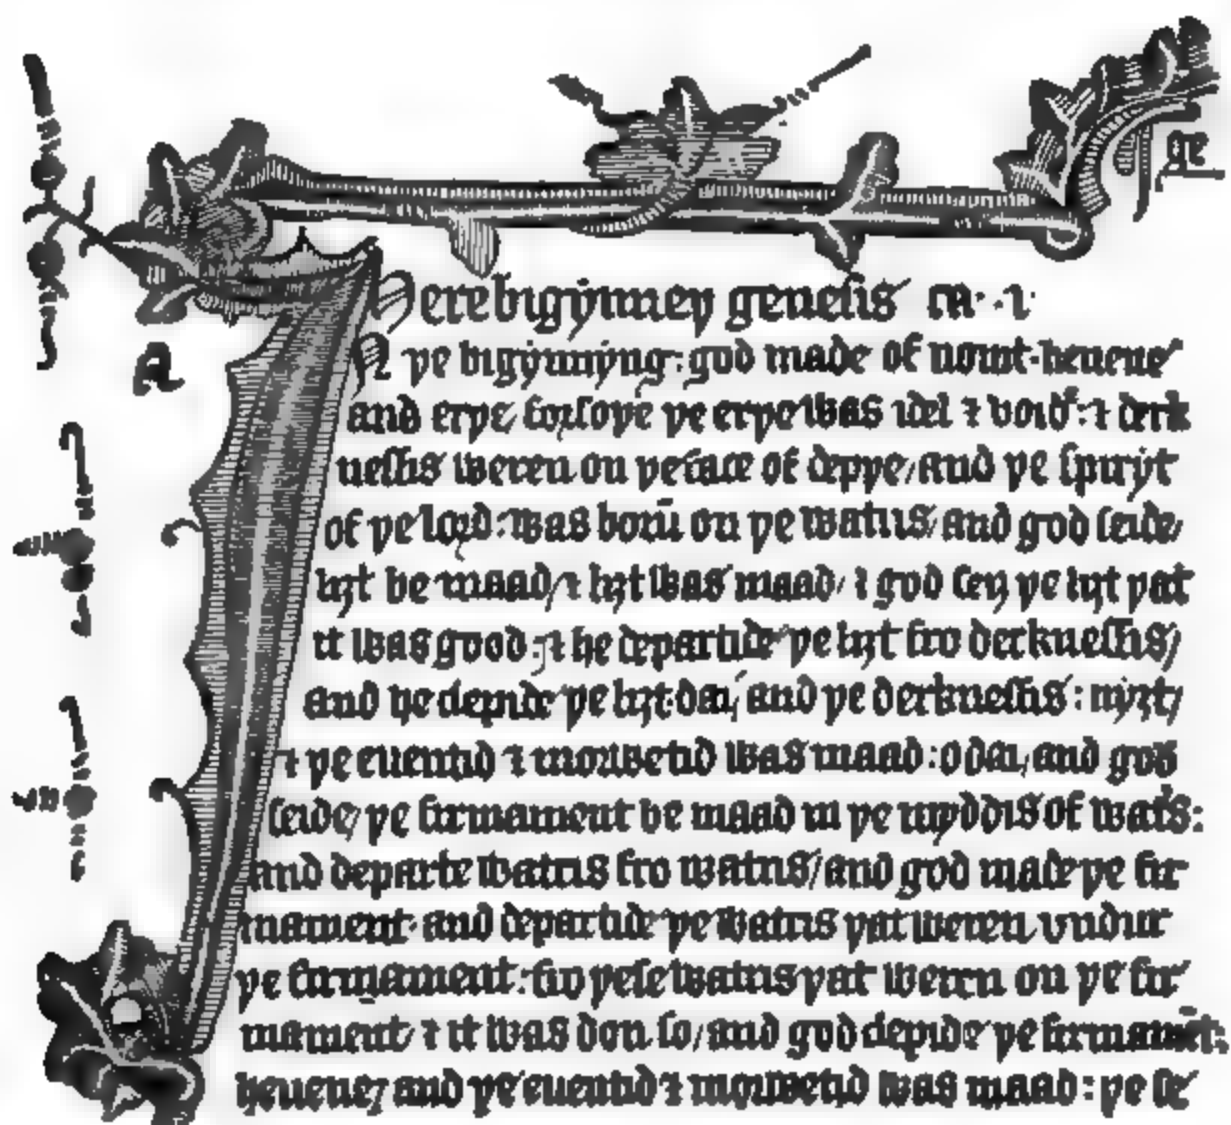 ge
Here bigynneþ genesis ca· ·i·
A
In þe bigynnyng: god made of nouȝt heuene
and erþe/ forsoþe þe erþe was idel ⁊ void: ⁊ derk
nessis weren on þe face of depþe/ and þe spiryt
of þe lord: was borū on þe watris/ and god seide/
liȝt be maad/ ⁊ liȝt was maad/ ⁊ god seiȝ þe liȝt þat
it was good: ⁊ he departide þe liȝt fro derknessis/
and he clepide þe liȝt dai/ and þe derknessis: nyȝt/
⁊ þe euentid ⁊ morwetid was maad: o dai/ and god
seide/ þe firmament be maad in þe myddis of wat's:
and departe watris fro watris/ and god made þe fir
mament· and departide þe watris þat weren vndur
þe firmament: fro þese watris þat weren on þe fir
mament/ ⁊ it was don so/ and god clepide þe firmamēt:
heuene/ and þe euentid ⁊ morwetid was maad: þe se